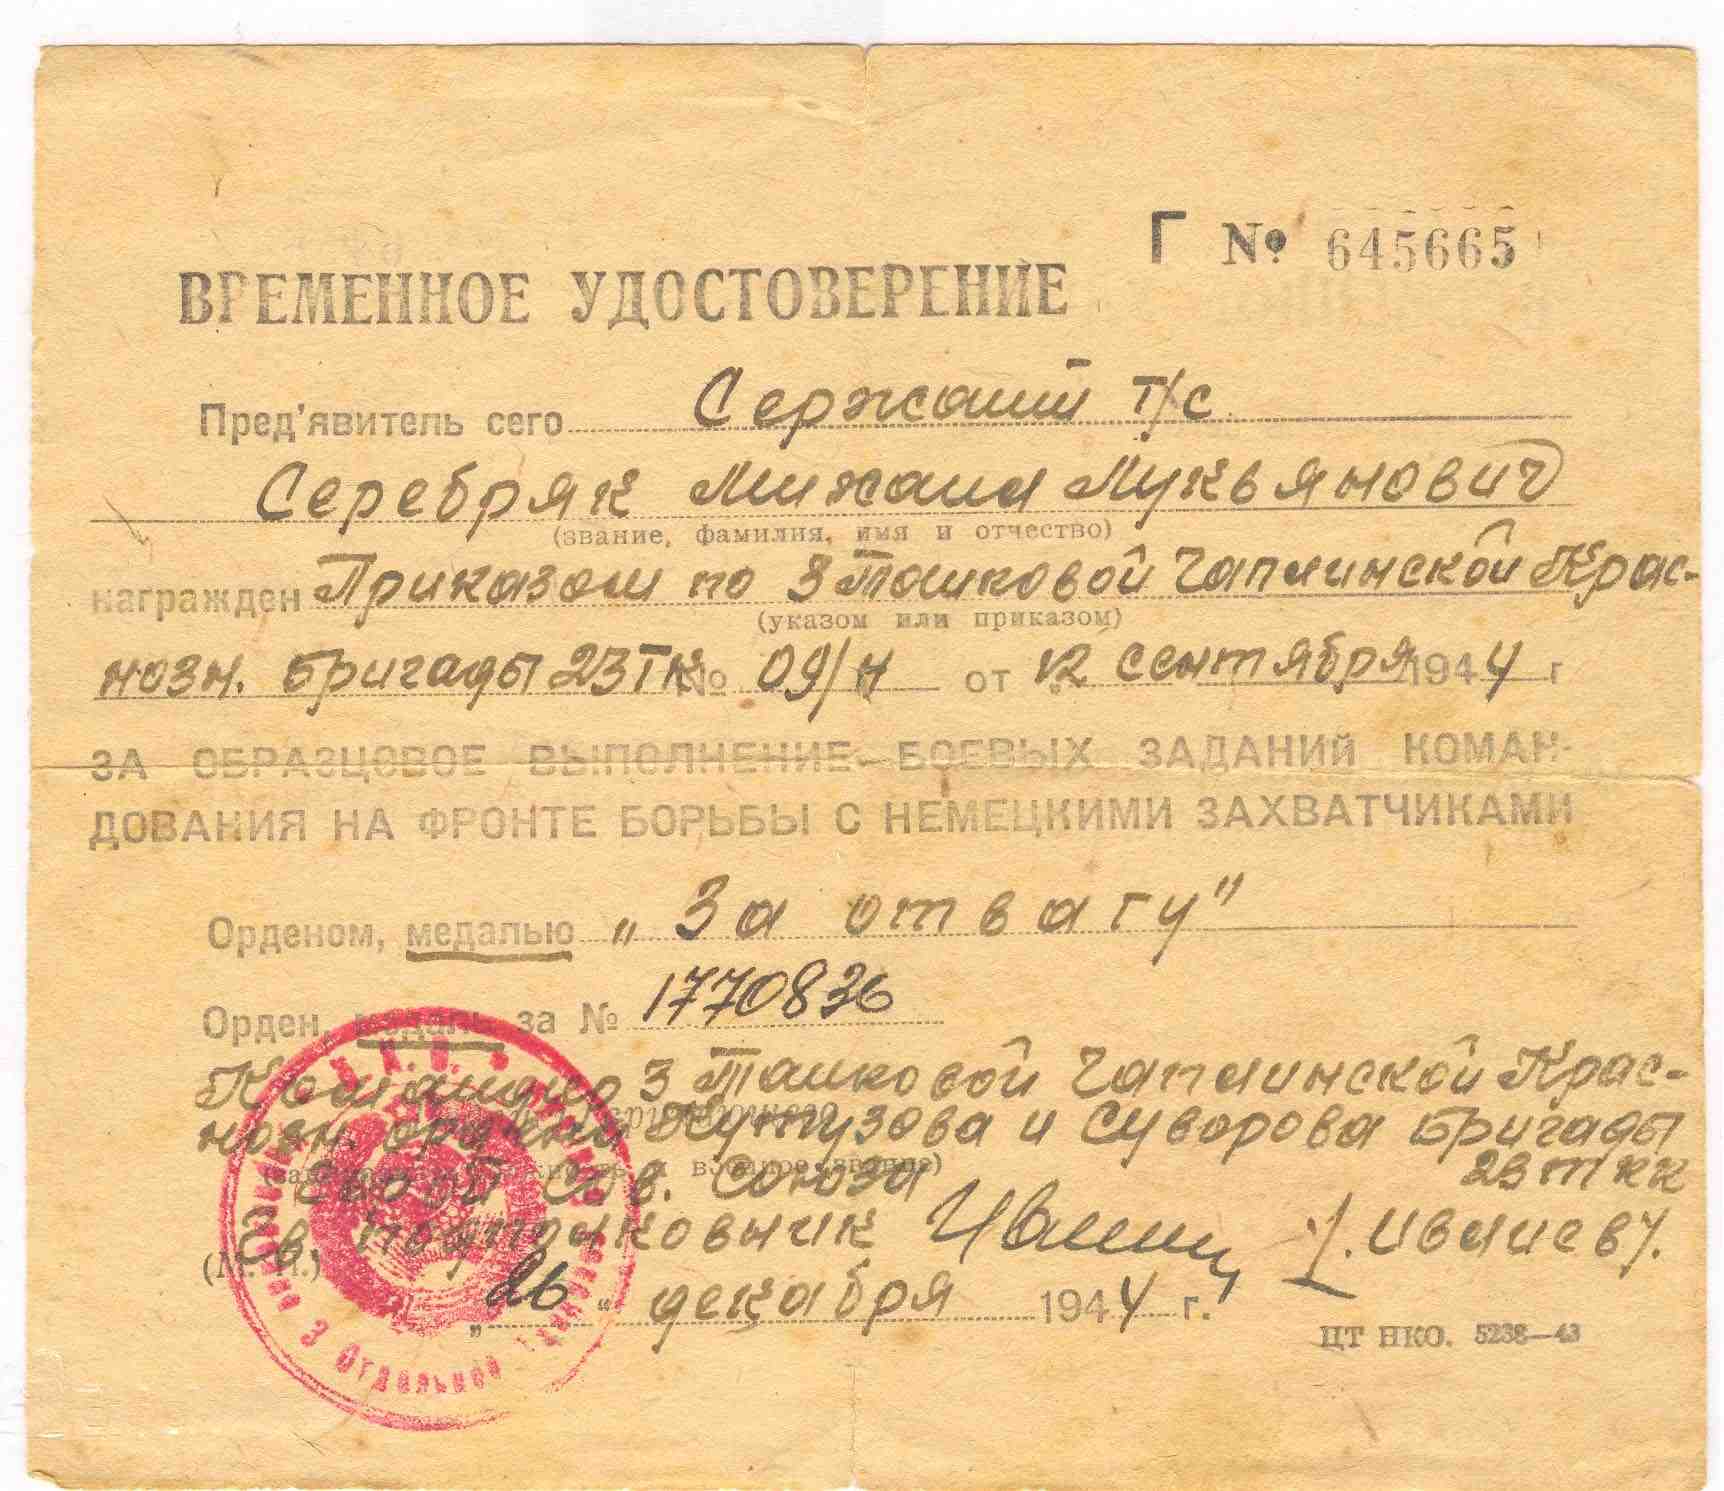 Г № 645665
ВРЕМЕННОЕ УДОСТОВЕРЕНИЕ
Пред'явитель сего Сержант т/с
Серебряк Михаил Лукьянович
(звание, фамилия, имя и отчество)
награжден Приказом по 3 Танковой Чаплинской Крас-
(указом или приказом)
нозн. бригады 23 ТК № 09/н от 12 сентября 1944 г
ЗА ОБРАЗЦОВОЕ ВЫПОЛНЕНИЕ БОЕВЫХ ЗАДАНИЙ КОМАН-
ДОВАНИЯ НА ФРОНТЕ БОРЬБЫ С НЕМЕЦКИМИ ЗАХВАТЧИКАМИ
Орденом, медалью „За отвагу"
Орден, медаль за № 1770836
3 Танковой Чаплинской Крас-
нозн. ордена Кутузова и Суворова бригады
Сов. Союза 23
Гв. подполковник
(М. П.)
„26" декабря 1944 г.
ЦТ НКО. 5238—43
3 Отдельной